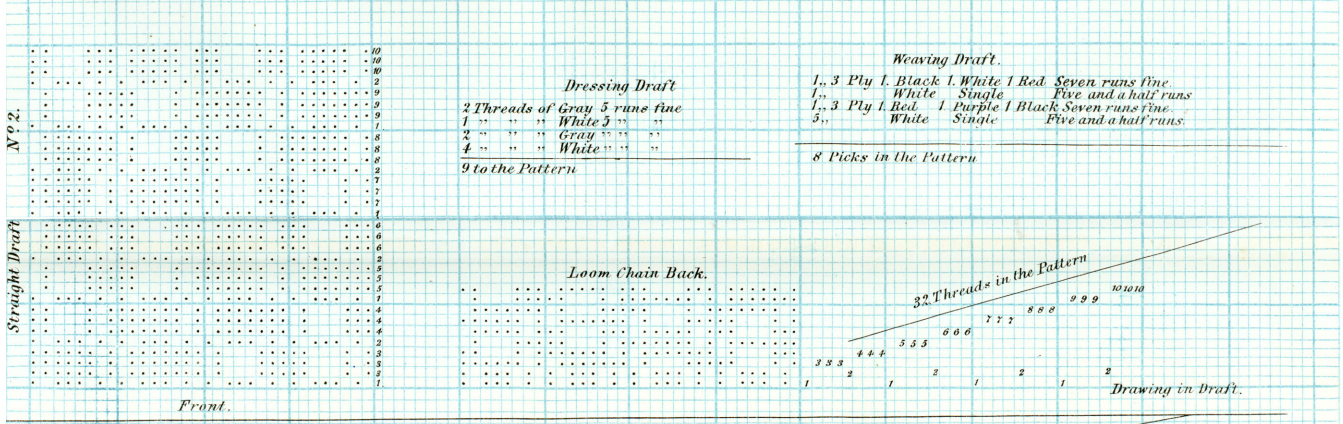 Nº 2.
Straight Draft
10
10
10
2
9
9
9
1
8
8
8
2
7
7
7
1
6
6
6
2
5
5
5
1
4
4
4
2
3
3
3
1
Front.
Dressing Draft
2 Threads of Gray 5 runs fine
1 " " " White 5 " "
2 " " " Gray " " "
4 " " " White " " "
9 to the Pattern
Weaving Draft.
1,, 3 Ply 1. Black 1. White 1 Red Seven runs fine.
1,, White Single Five and a half runs
1,, 3 Ply 1. Red 1 Purple 1 Black Seven runs fine.
5,, White Single Five and a half runs.
8 Picks in the Pattern
Loom Chain Back.
32 Threads in the Pattern
10 10 10
9 9 9
8 8 8
7 7 7
6 6 6
5 5 5
4 4 4
3 3 3
2 2 2 2
1 1 1 1
Drawing in Draft.